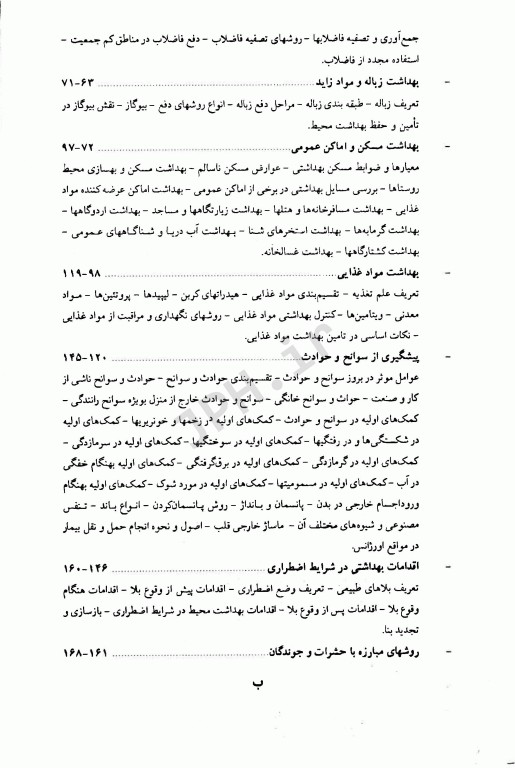 جمع‌آوری و تصفیه فاضلابها - روشهای تصفیه فاضلاب - دفع فاضلاب در مناطق کم جمعیت -
استفاده مجدد از فاضلاب.
- بهداشت زباله و مواد زاید ........ ۶۳-۷۱
تعریف زباله - طبقه بندی زباله - مراحل دفع زباله - انواع روشهای دفع - بیوگاز - نقش بیوگاز در
تأمین و حفظ بهداشت محیط.
- بهداشت مسکن و اماکن عمومی ........ ۷۲-۹۷
معیارها و ضوابط مسکن بهداشتی - عوارض مسکن ناسالم - بهداشت مسکن و بهسازی محیط
روستاها - بررسی مسایل بهداشتی در برخی از اماکن عمومی - بهداشت اماکن عرضه کننده مواد
غذایی - بهداشت مسافرخانه‌ها و هتلها - بهداشت زیارتگاهها و مساجد - بهداشت اردوگاهها -
بهداشت گرمابه‌ها - بهداشت استخرهای شنا - بهداشت آب دریا و شناگاههای عمومی -
بهداشت کشتارگاهها - بهداشت غسالخانه.
- بهداشت مواد غذایی ........ ۹۸-۱۱۹
تعریف علم تغذیه - تقسیم‌بندی مواد غذایی - هیدراتهای کربن - لیپیدها - پروتئین‌ها - مواد
معدنی - ویتامین‌ها -کنترل بهداشتی مواد غذایی - روشهای نگهداری و مراقبت از مواد غذایی
- نکات اساسی در تامین بهداشت مواد غذایی.
- پیشگیری از سوانح و حوادث ........ ۱۲۰-۱۴۵
عوامل موثر در بروز سوانح و حوادث - تقسیم‌بندی حوادث و سوانح - حوادث و سوانح ناشی از
کار و صنعت - حواث و سوانح خانگی - سوانح و حوادث خارج از منزل بویژه سوانح رانندگی -
کمک‌های اولیه در سوانح و حوادث - کمک‌های اولیه در زخمها و خونریریها - کمک‌های اولیه
در شکستگی‌ها و در رفتگیها - کمک‌های اولیه در سوختگیها - کمک‌های اولیه در سرمازدگی -
کمک‌های اولیه در گرمازدگی - کمک‌های اولیه در برق‌گرفتگی - کمک‌های اولیه بهنگام خفگی
در آب - کمک‌های اولیه در مسمومیتها - کمک‌های اولیه در مورد شوک - کمک‌های اولیه بهنگام
وروداجسام خارجی در بدن - پانسمان و بانداژ - روش پانسمان‌کردن - انواع باند - تنفس
مصنوعی و شیوه‌های مختلف آن - ماساژ خارجی قلب - اصول و نحوه انجام حمل و نقل بیمار
در مواقع اورژانس.
- اقدامات بهداشتی در شرایط اضطراری ........ ۱۴۶-۱۶۰
تعریف بلاهای طبیعی - تعریف وضع اضطراری - اقدامات پیش از وقوع بلا - اقدامات هنگام
وقوع بلا - اقدامات پس از وقوع بلا - اقدامات بهداشت محیط در شرایط اضطراری - بازسازی و
تجدید بنا.
- روشهای مبارزه با حشرات و جوندگان ........ ۱۶۱-۱۶۸
ب
JPH.ir